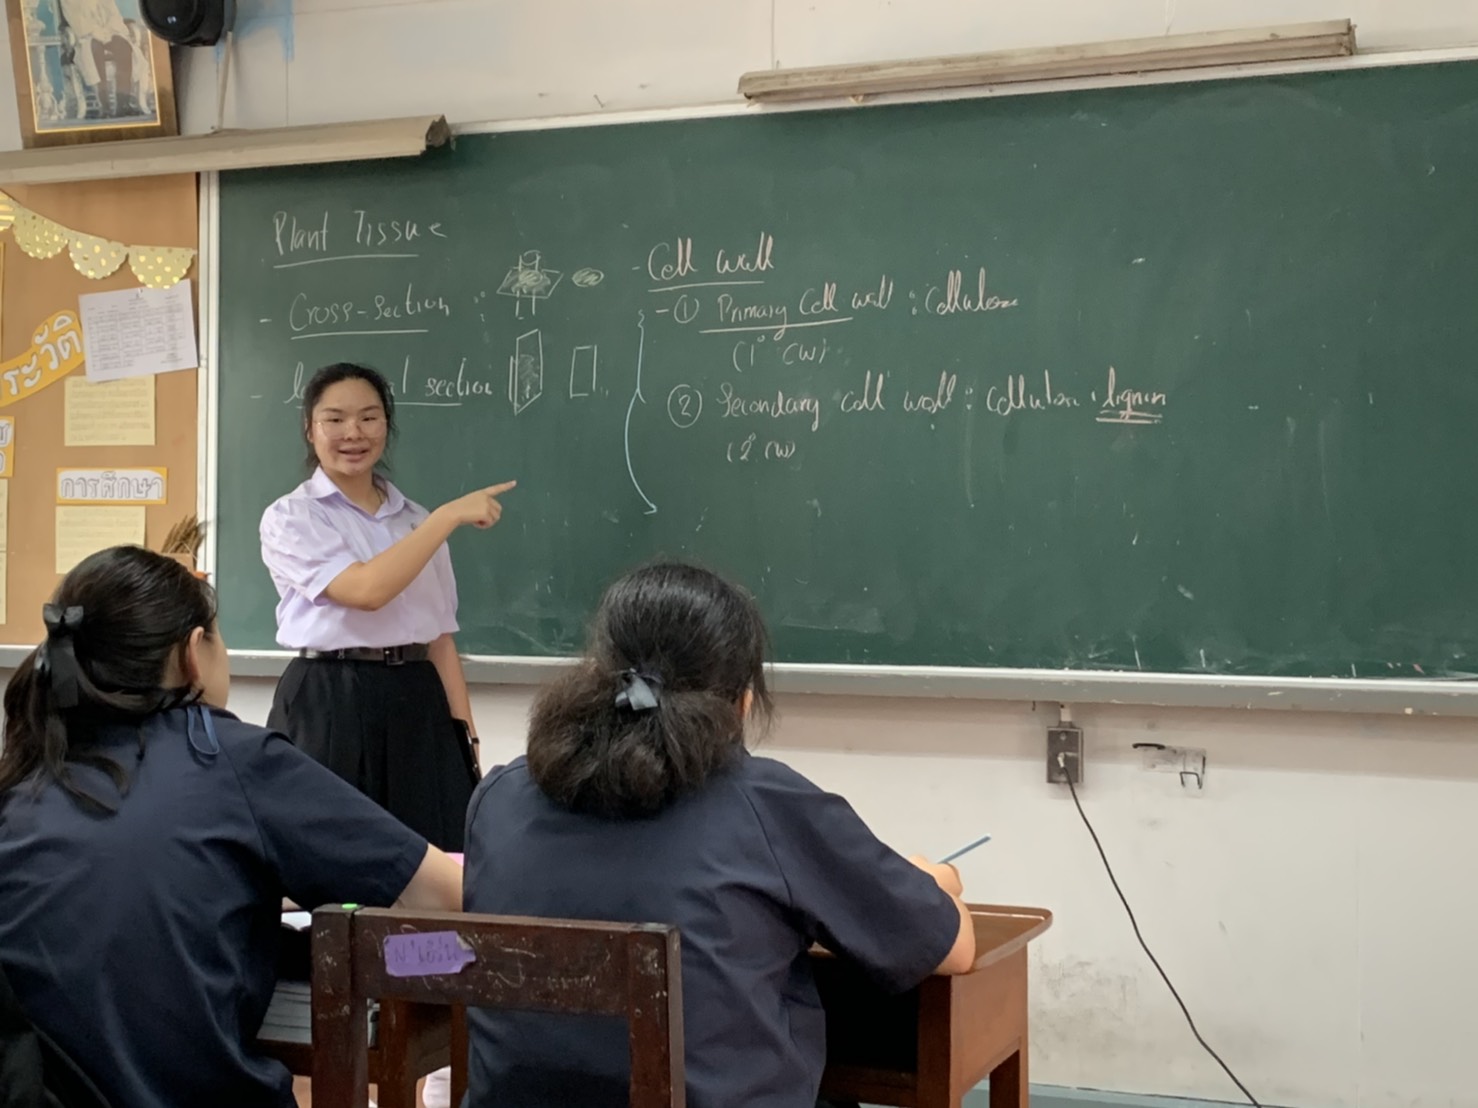 Plant Tissue
- Cross-section :
- section
- Cell wall
- ① Primary Cell wall : Cellulose
(1° CW)
② Secondary cell wall : Cellulose + lignin
(2° CW)
ระวัติ
การศึกษา